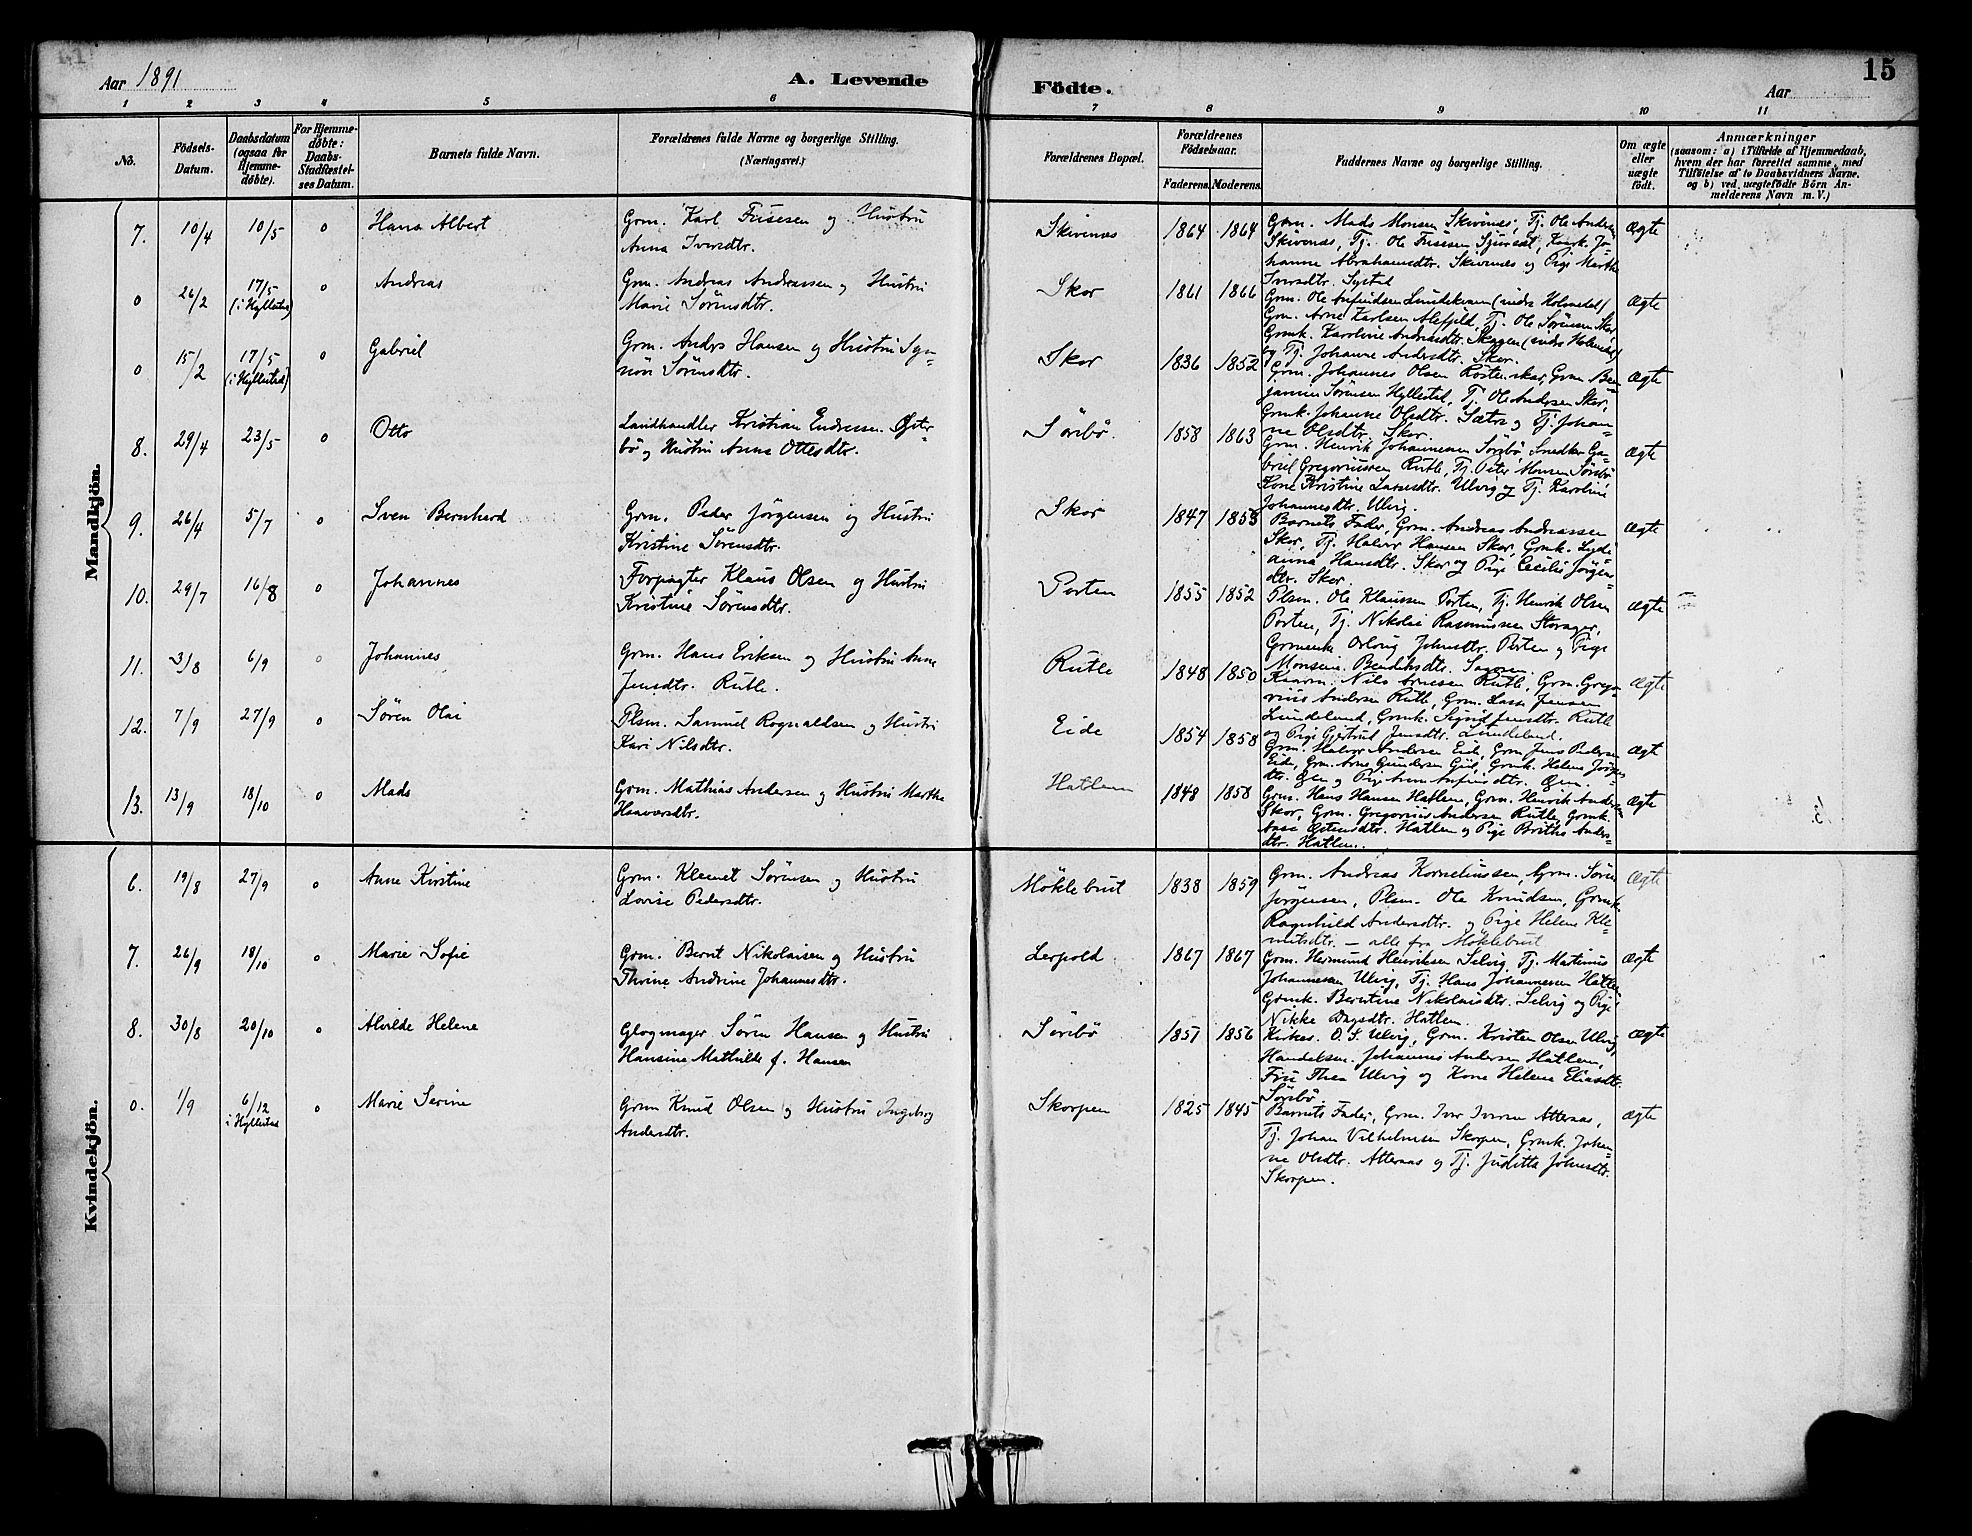 Aar 1891
A. Levende
Födte.
Aar
15
1 2 3 4 5 6 7 8 9 10 11
No.
Födsels-
Datum.
Daabsdatum
(ogsaa for
Hjemme-
döbte).
For Hjemme-
döbte:
Daabs-
Stadfæstel-
ses Datum.
Barnets fulde Navn.
Forældrenes fulde Navne og borgerlige Stilling.
(Næringsvei.)
Forældrenes Bopæl.
Forældrenes
Födselsaar.
Faderens. Moderens.
Faddernes Navne og borgerlige Stilling.
Om ægte
eller
uægte
födt.
Anmærkninger
(saasom: a) i Tilfælde af Hjemmedaab,
hvem der har forrettet samme, med
Tilföielse af to Daabsvidners Navne.
og b) ved uægtefödte Börn An-
melderens Navn m. V.)
Mandkjön.
7. 10/4 10/5 o Hans Albert
Grm. Karl Frisesen og Hustru
Anna Iversdtr.
Skivenæs 1864 1864
Grm. Mads Monsen Skivenes, Tj. Ole Andersen
Skivenæs, Tj. Ole Frisesen Systad, Konk. Jo-
hanne Abrahamsdtr. Skivenes og Pige Marthe
Iversdtr. Systad
Ægte
o 26/2 17/5 o Andreas
(i Hyllestad)
Grm. Andreas Andreassen og Hustru
Marie Sörensdtr.
Skor 1861 1866
Grm. Ole Anfindsen Lundekvam (indre Holmedal)
Grm. Arne Karlsen Alefjeld, Tj. Ole Sörensen Skor
Grmk. Karoline Andreasdtr. Skagen (indre Holmedal)
og Tj. Johanne Andersdtr. Skor.
Ægte
o 15/2 17/5 o Gabriel
(i Hyllestad)
Grm. Anders Hansen og Hustru Syn-
növ Sörensdtr.
Skor 1836 1852
Grm. Johannes Olsen Röstenskar, Grm. Ben-
jamin Sörensen Hyllestad, Tj. Ole Andersen Skor,
Grmk. Johanne Olsdtr. Sætre og Tj. Johan-
ne Olsdtr. Skor.
Ægte
8. 29/4 23/5 o Otto
Landhandler Kristian Endresen Öster-
bö og Hustru Anna Ottesdtr.
Söribö. 1858 1863
Grm. Henrik Johannesen Söribö, Snedker Ga-
briel Gregoriussen Rutle, Tj. Peter Monsen Söribö
Kone Kristine Lassesdtr. Ulvig og Tj. Karoline
Johannesdtr. Ulvig.
Ægte
9. 26/4 5/7 o Sven Bernhard
Grm. Peder Jörgensen og Hustru
Kristine Sörensdtr.
Skor 1847 1853
Barnets Fader, Grm. Andreas Andreassen
Skor, Tj. Halvor Hansen Skor, Grmk. Lydi-
anna Hansdtr. Skor og Pige Cecilie Jörgens-
dtr. Skor.
Ægte
10. 29/7 16/8 o Johannes
Forpagter Klaus Olsen og Hustru
Kristine Sörensdtr.
Porten 1855 1852
Plsm. Ole Klaussen Porten, Tj. Henrik Olsen
Porten, Tj. Nikolai Rasmussen Storager,
Grmenk. Orloug Johnsdtr. Porten og Pige
Monsine Bendiksdtr.
Ægte
11. 3/8 6/9 o Johannes
Grm. Hans Eriksen og Hustru Anne
Jensdtr. Rutle.
Rutle 1848 1850
Kaarm. Nils Arnesen Rutle, Grm. Grego-
rius Andersen Rutle, Grm. Lasse Jensen
Lundeland, Grmk. Sigrid Jensdtr. Rutle
og Pige Gjertrud Jensdtr. Lundeland.
Ægte
12. 7/9 27/9 o Sören Olai
Plsm. Samuel Rognaldsen og Hustru
Kari Nilsdtr.
Eide 1854 1858
Grm. Halvor Andersen Eide, Grm. Jens Pedersen
Eide, Grm. Arne Gundersen Gjil, Grmk. Helene Jörgens-
dtr. Öen og Pige Anne Anfinsdtr. Öen.
Ægte
13. 13/9 18/10 o Mads
Grm. Mathias Andersen og Hustru Marthe
Haavarsdtr.
Hatlem 1848 1858
Grm. Hans Hansen Hatlem, Grm. Henrik Andersen
Skor, Grm. Gregorius Andersen Rutle, Grmk.
Anna Östensdtr. Hatlem og Pige Brithe Anders-
dtr. Hatlem.
Ægte
Kvindekjön.
6. 19/8 27/9 o Anne Kirstine
Grm. Klemet Sörensen og Hustru
Lovise Pedersdtr.
Möklebust 1838 1859
Grm. Andreas Korneliussen, Grm. Sören
Jörgensen, Plsm. Ole Knudsen, Grmk.
Ragnhild Andersdtr. og Pige Helene Kle-
metsdtr. — alle fra Möklebust
Ægte
7. 26/9 18/10 o Marie Sofie
Grm. Bernt Nikolaisen og Hustru
Thrine Andrine Johannesdtr.
Leypold 1867 1867
Grm. Hermund Henriksen Selvig, Tj. Martinus
Johannessen Ulvig, Tj. Hans Johannessen Hatlem
Grmk. Berntine Nikolaisdtr. Selvig og Pige
Nikke Dagsdtr. Hatlem.
Ægte
8. 30/8 20/10 o Alvilde Helene
Glogmager Sören Hansen og Hustru
Hansine Mathilde f. Hansen
Söribö 1857 1856
Kirkes. O. S. Ulvig, Grm. Kristen Olsen Ulvig,
Handelsm. Johannes Andersen Hatlem,
Fru Thea Ulvig og Kone Helene Eliasdtr.
Söribö
Ægte
o. 1/9 6/12 o Marie Serine
i Hyllestad
Grm Knud Olsen og Hustru Ingeborg
Andersdtr.
Skorpen 1825 1845
Barnets Fader, Grm. Iver Iversen Atteraas,
Tj. Johan Vilhelmsen Skorpen, Grmk. Johan-
ne Olsdtr. Atteraas og Tj. Juditta Johnsdtr.
Skorpen.
Ægte